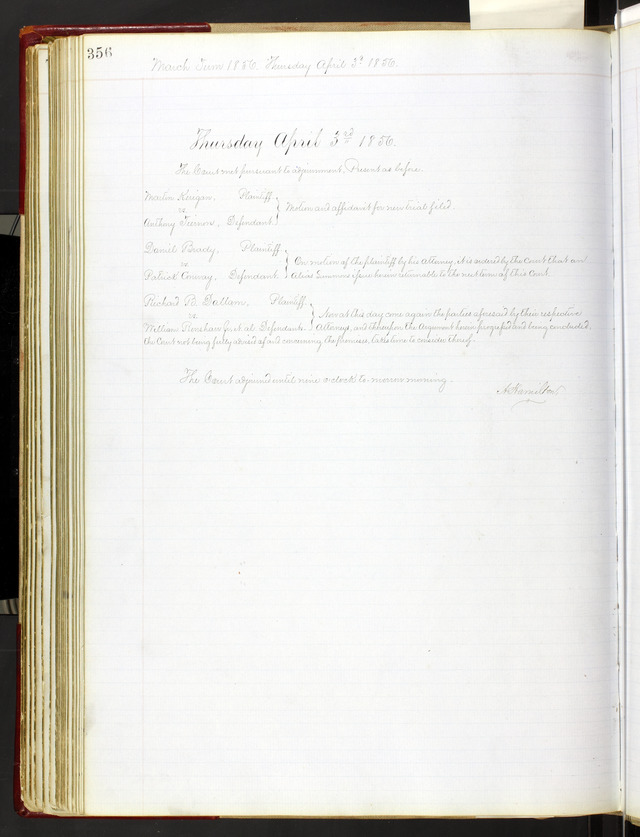 356
March Term 1856. Thursday April 3d 1856.
Thursday April 3rd 1856.
The Court met pursuant to adjournment, Present as before.
Martin Keegan, Plaintiff
vs
Anthony , Defendant
Motion and affidavit for new trial filed.
Daniel Brady, Plaintiff
vs
Patrick Conway, Defendant
On motion of the plaintiff by his Attorney, it is ordered by the Court that an
Alias Summons issue herein returnable to the next term of this Court.
Richard B. , Plaintiff
vs
William Renshaw et al. Defendants.
Now at this day come again the parties aforesaid by their respective
Attorneys, and thereupon the Argument herein progressed and being concluded,
the Court not being fully advised of and concerning the premises, takes time to consider thereof.
The Court adjourned until nine o'clock to-morrow morning.
A Hamilton